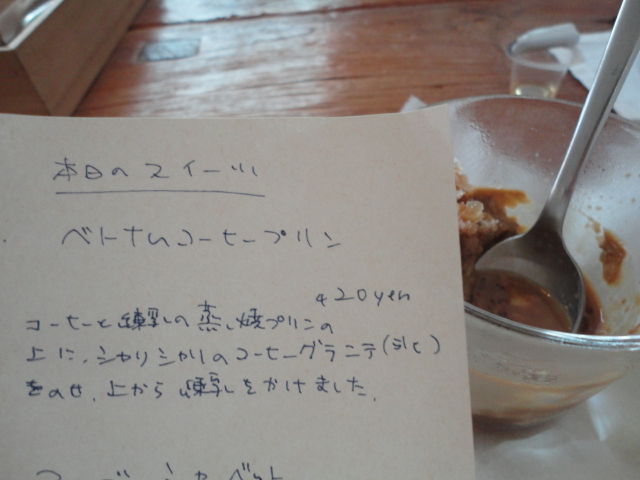 本日のスイーツ
ベトナムコーヒープリン
420yen
コーヒーと練乳の蒸し焼プリンの
上に、シャリシャリのコーヒーグラニテ(氷)
をのせ、上から練乳をかけました。